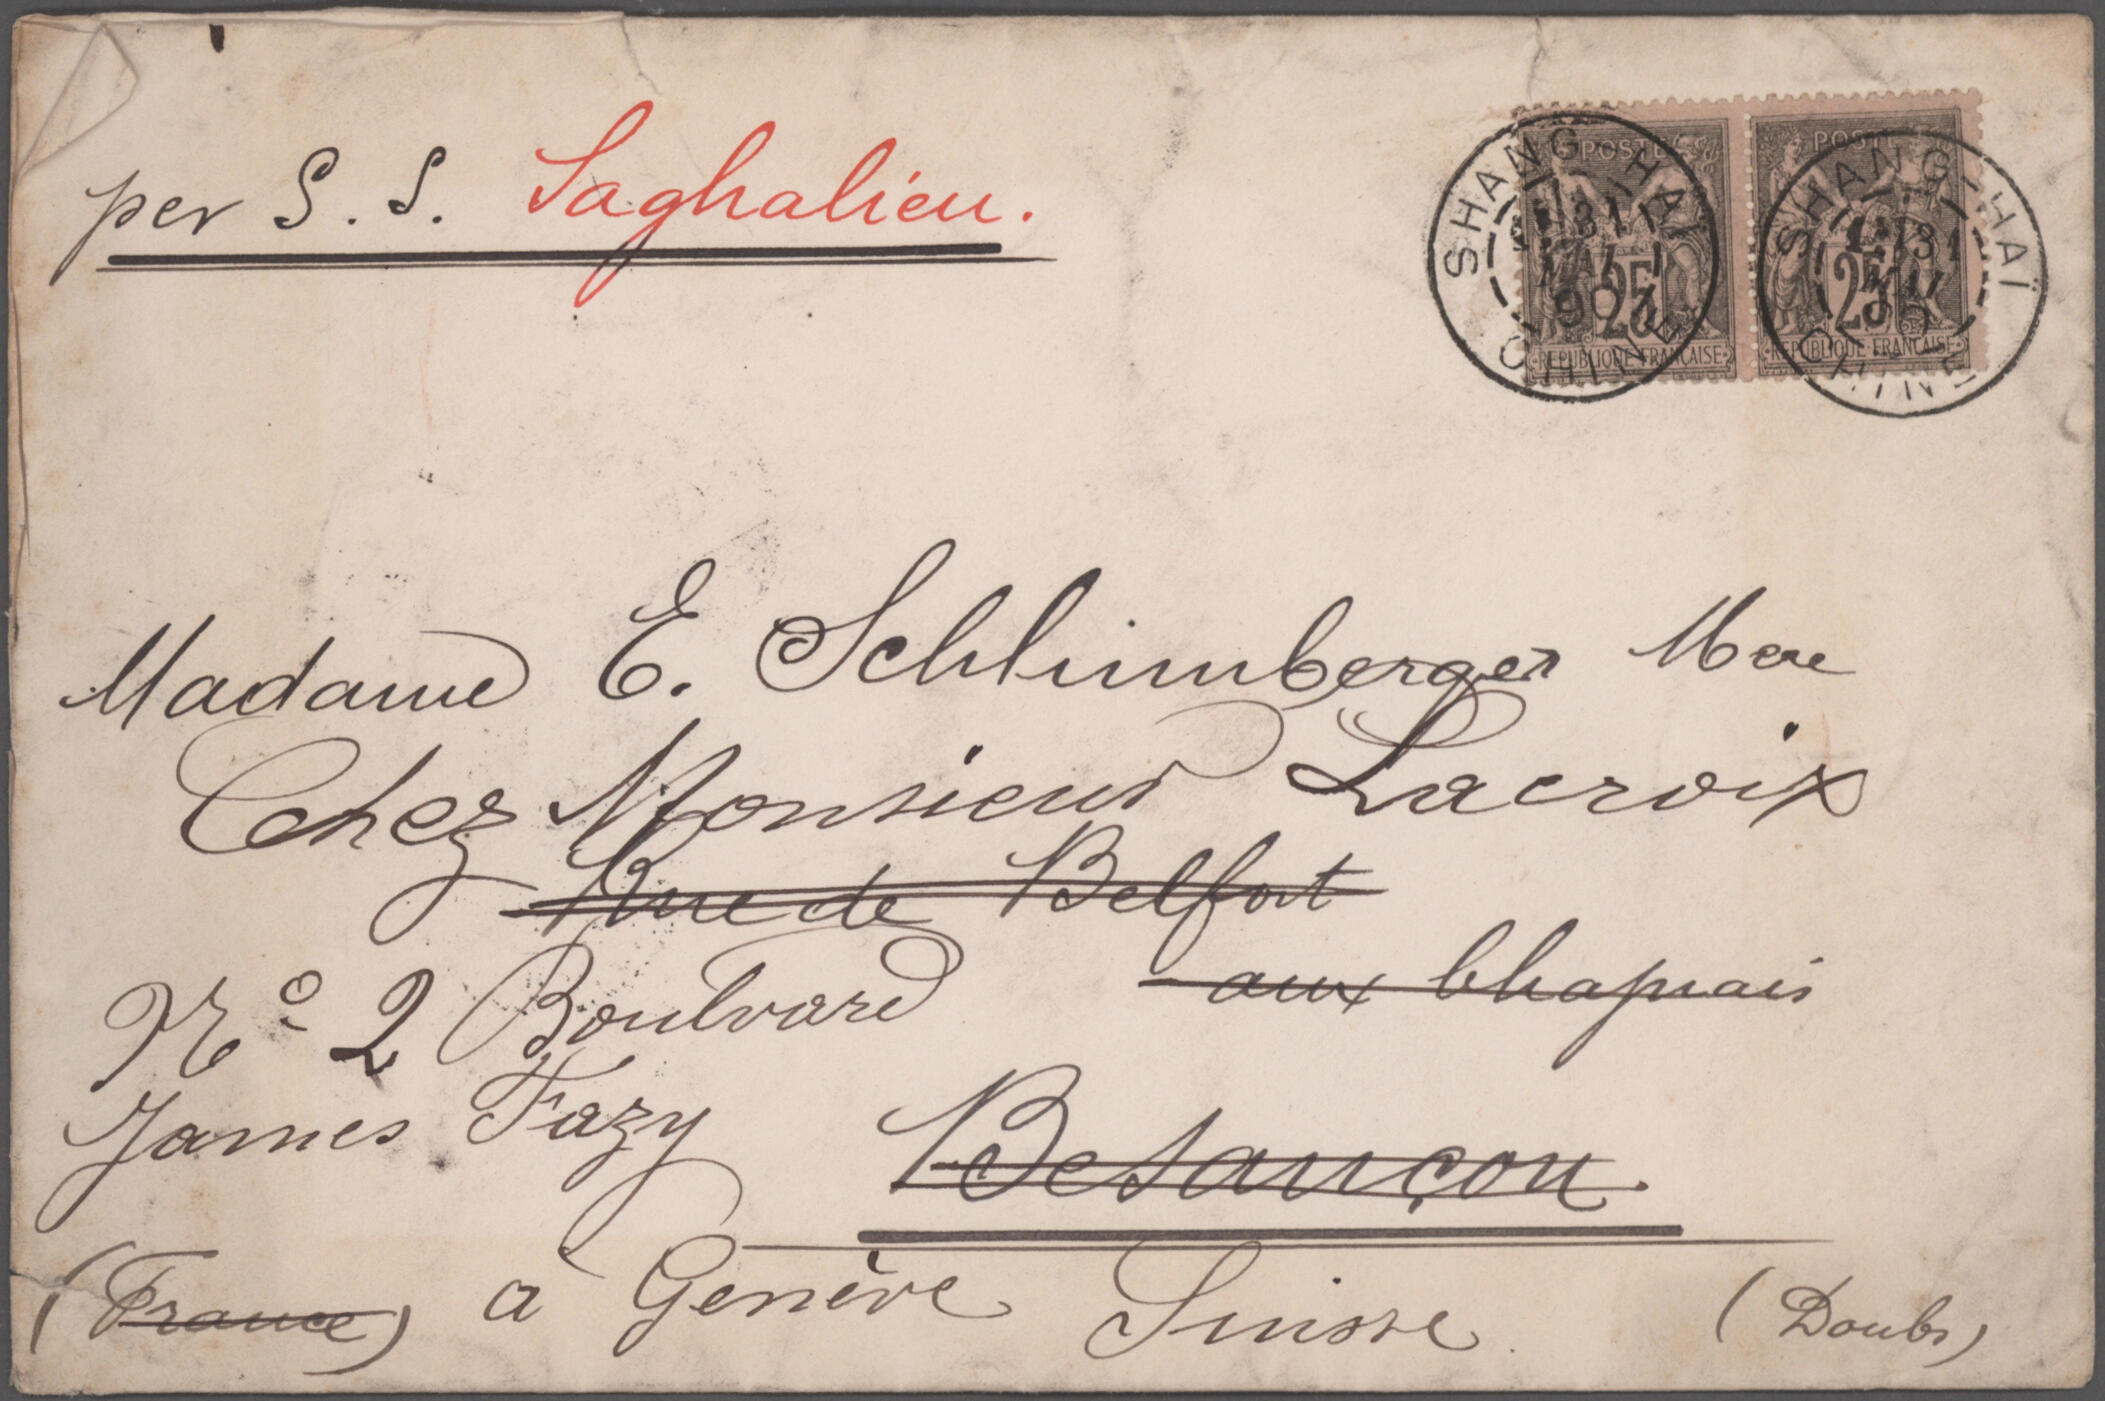 per S. S. Saghalien.
POSTE
25
REPUBLIQUE FRANCAISE
POSTE
25
REPUBLIQUE FRANCAISE
SHANG-HAÏ
31
MAI
90
CHINE
SHANG-HAÏ
31
MAI
90
CHINE
Madame E. Schlumberger Mere
Chez Monsieur Lacroix
Rue de Belfort
aux Chaprais
No 2 Boulvard
James Fazy
Besançon.
(France) à Genève Suisse (Doubs)